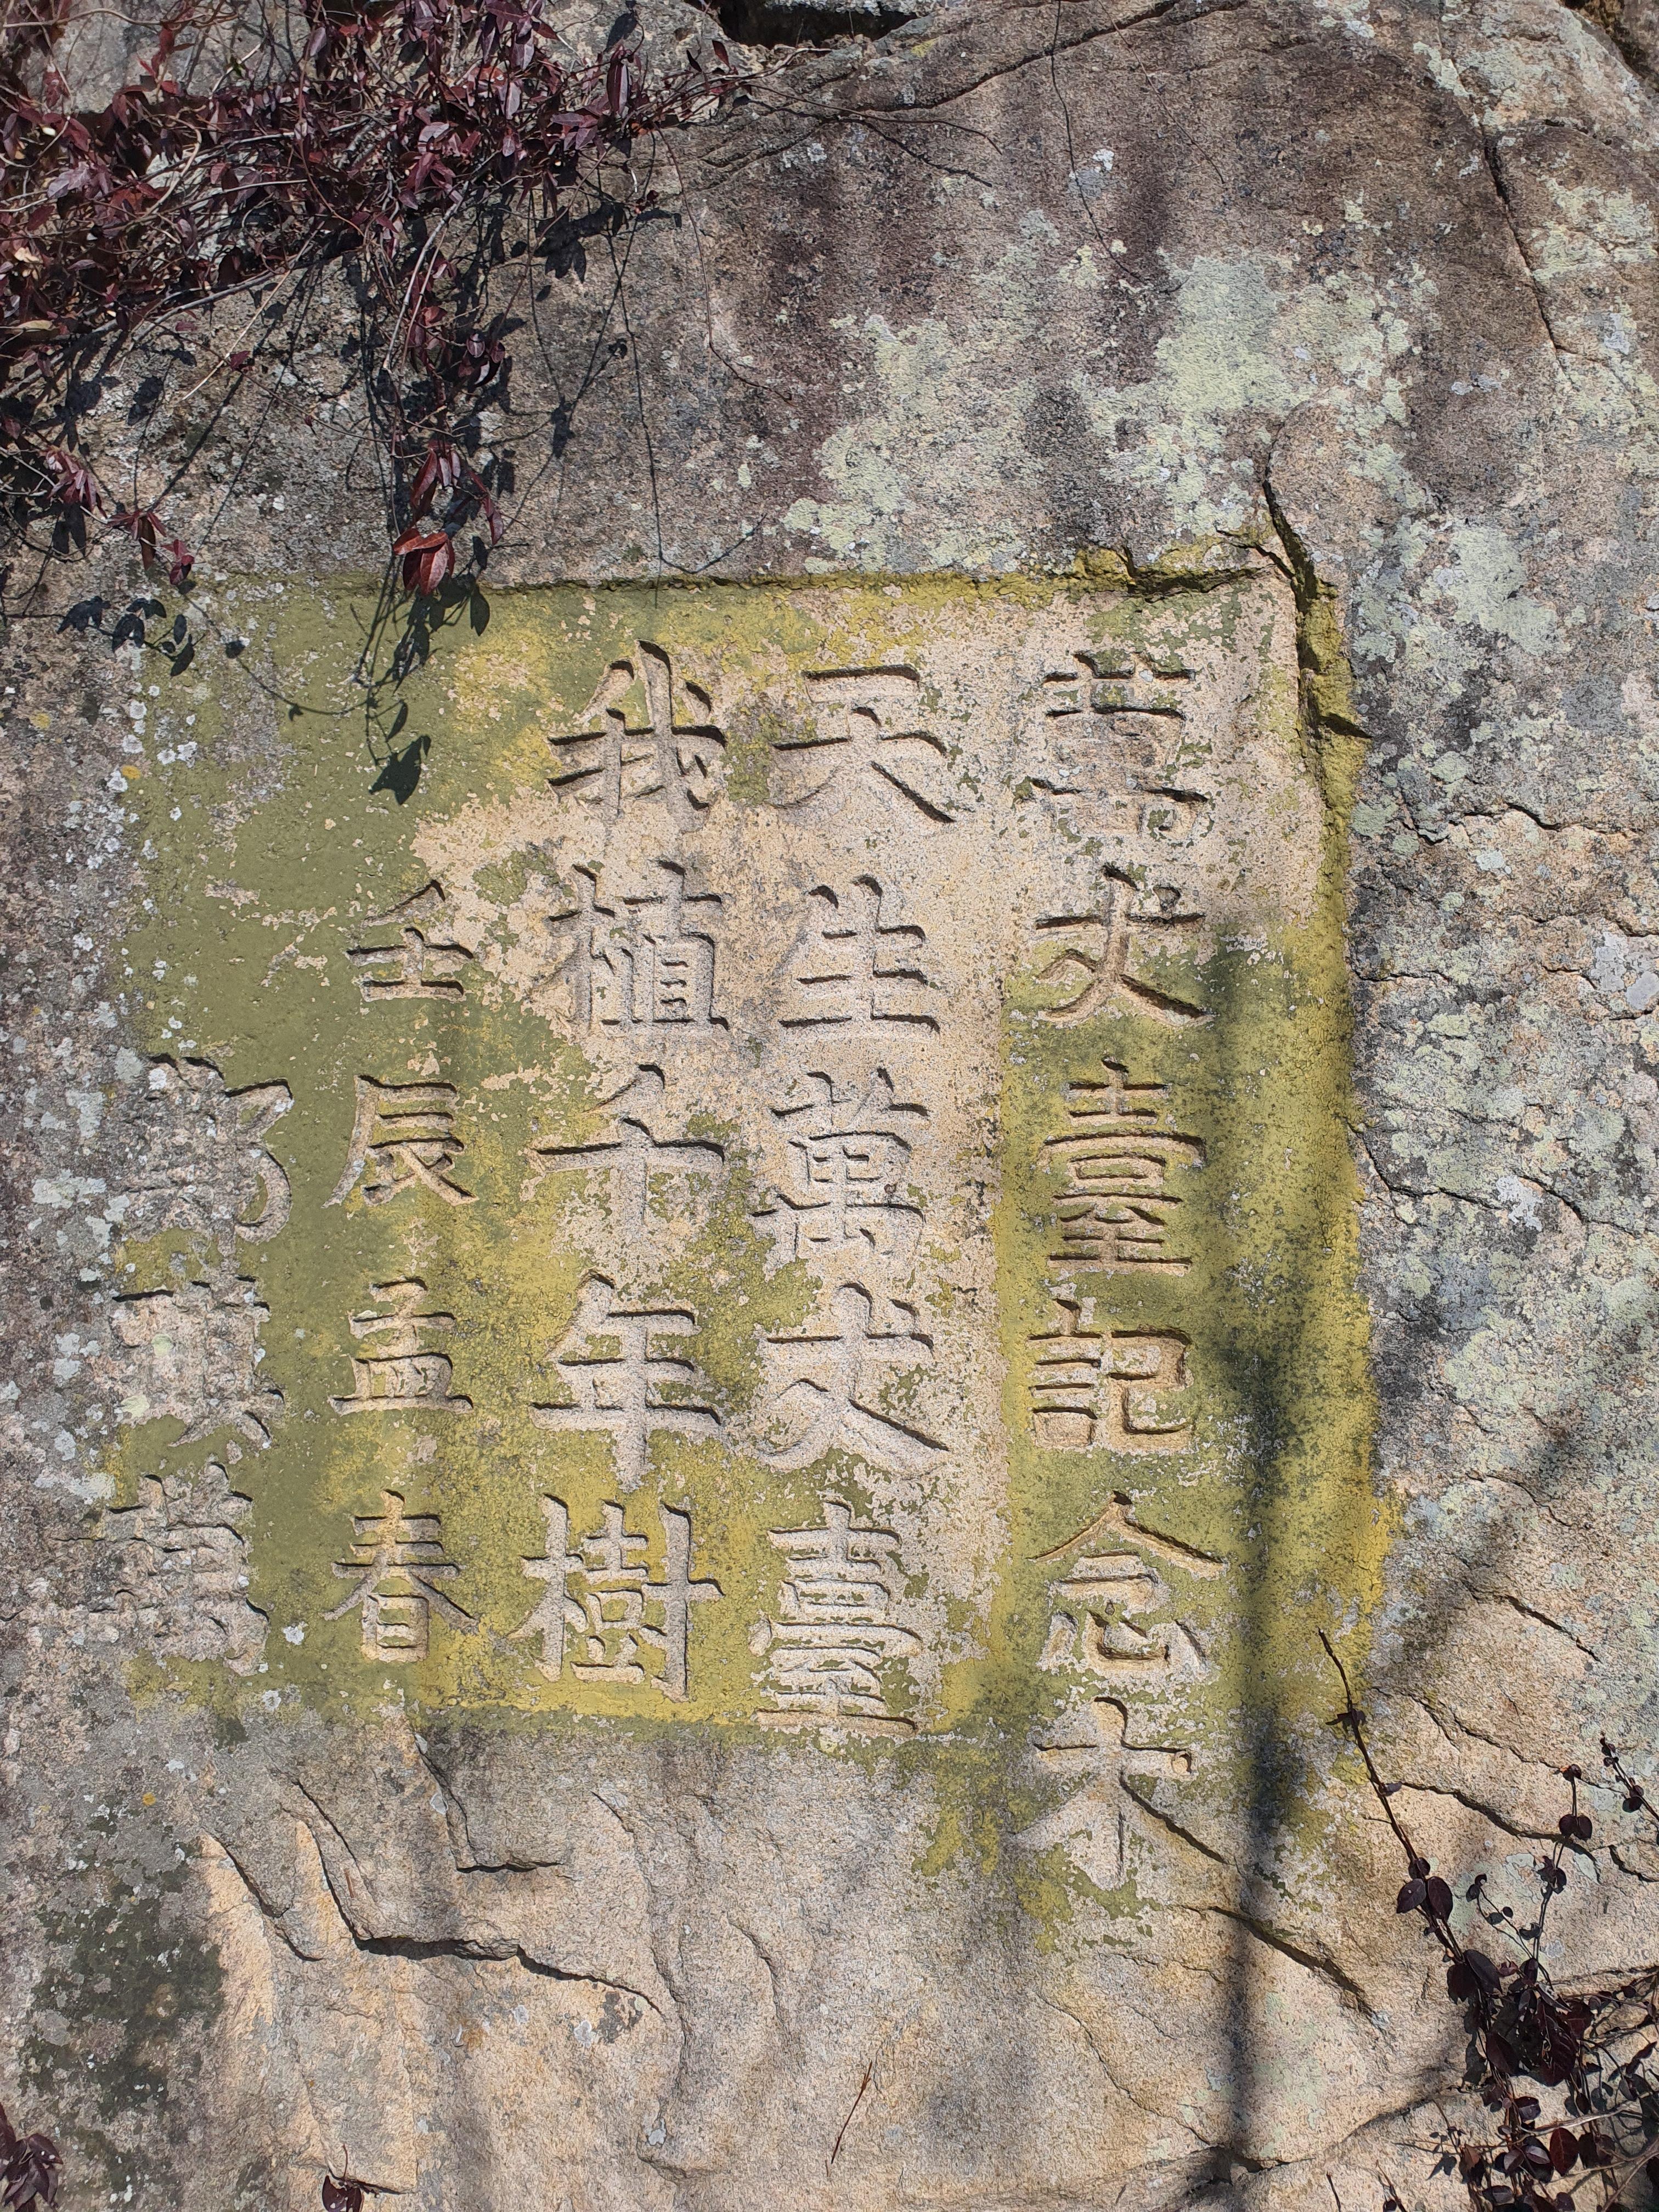 萬丈臺記念木
天生萬丈臺
我植千年樹
壬辰孟春
萬